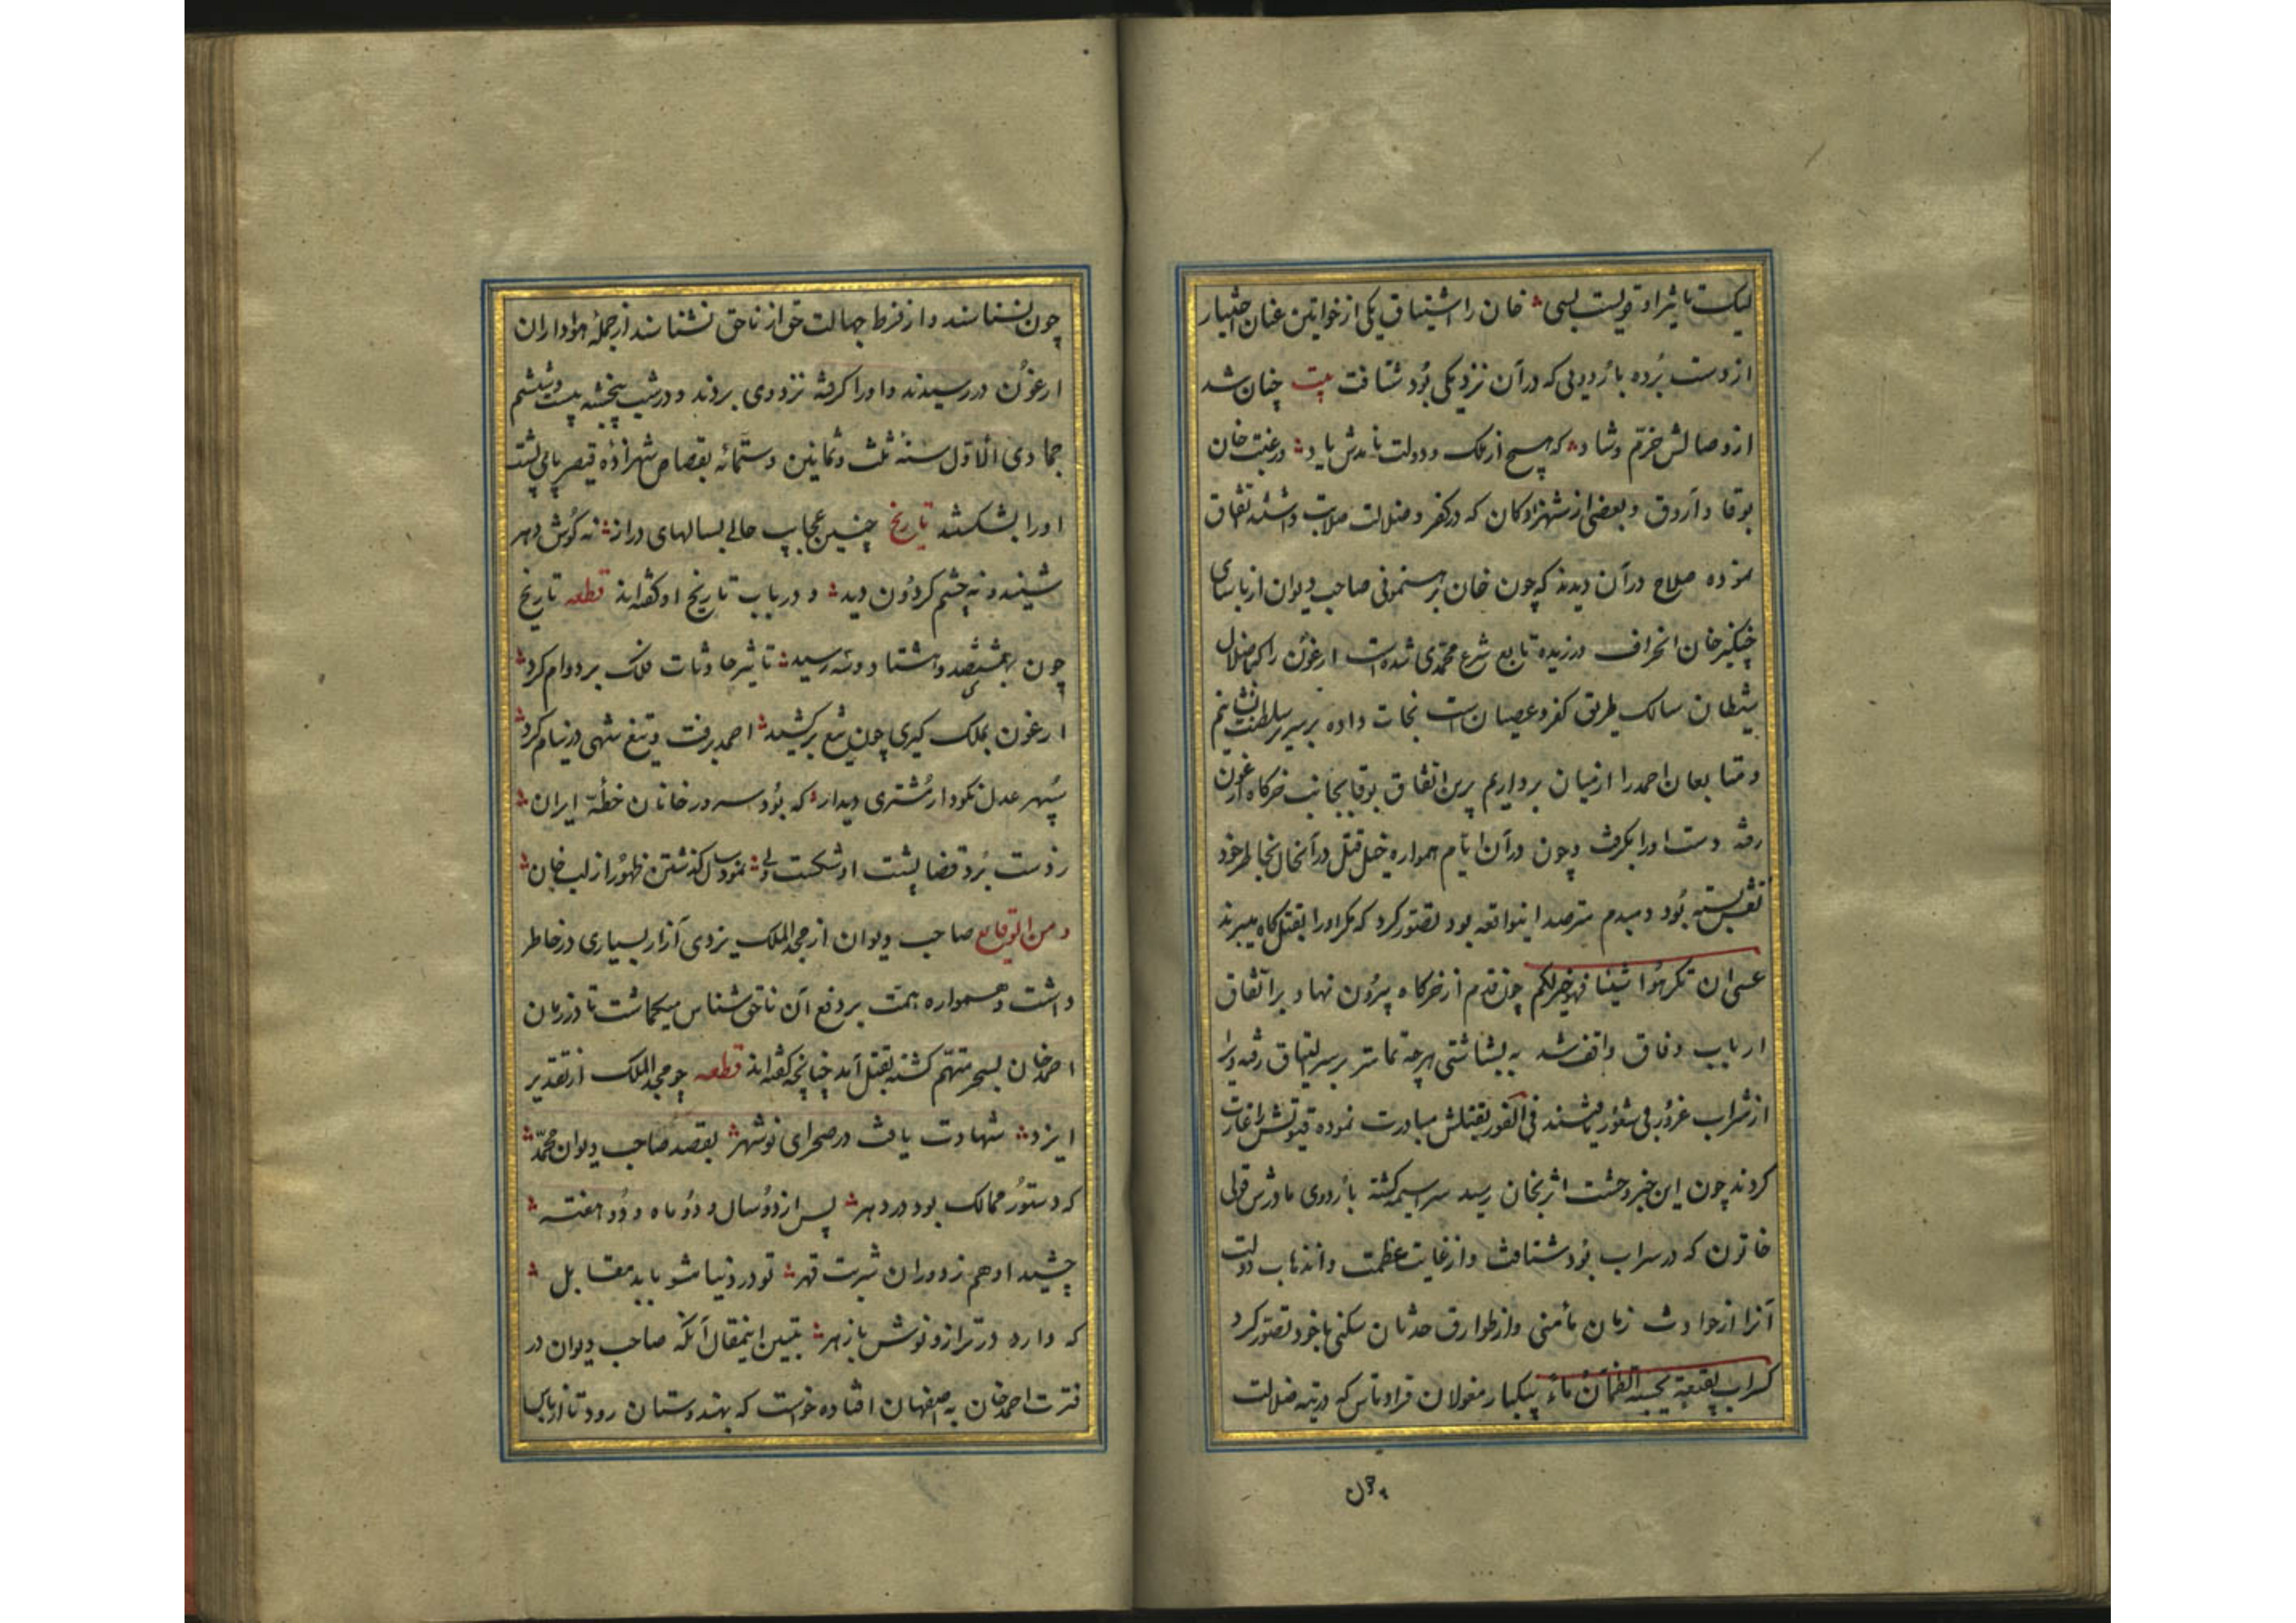 لیک تاثیر او قویست بسی خان را اشتیاق یکی از خواتین عنان اختیار
از دست برده باردویی که در آن نزدیکی بود شتافت بیت چنان شد
از وصالش خرم و شاد که هیچ از ملک و دولت نامدش یاد در غیبت خان
بوقا و آروق و بعضی از شهزادکان که در کفر و ضلالت صلابت داشتند اتفاق
نموده صلاح در آن دیدند که چون خان برهنمونی صاحب دیوان از یاسای
چنکیز خان انحراف ورزیده تابع شرع محمدی شده است ارغون را که باضلال
شیطان سالک طریق کفر و عصیان است نجات داده بر سریر سلطنت نشانیم
و متابعان احمد را از میان برداریم برین اتفاق بوقا بجانب خرکاه ارغون
رفته دست او را بکرفت و چون در آن ایام همواره خیل قتل در آنحال بخاطر خود
نقش بسته بود و مبدم مترصد اینواقعه بود تصور کرد که مکر او را بقتلکاه میبرند
عسی ان تکرهوا شیئا فهو خیر لکم چون قدم از خرکاه بیرون نهاد و بر اتفاق
ارباب وفاق واقف شد به بشاشتی هرچه تمامتر بر سر الیناق رفته ویرا
از شراب غرور بی شعور یافتند فی الفور بقتلش مبادرت نموده قیتولش را غارت
کردند چون این خبر وحشت اثر بخان رسید سراسیمه کشته باردوی مادرش قوتی
خاتون که در سراب بود شتافت و از غایت عظمت و اذهاب دولت
آنرا از حوادث زمان مأمنی و از طوارق حدثان سکنی با خود تصور کرد
کسراب بقیعة یحسبه الظمآن ماء بیکبار مغولان قراوناس که در تیه ضلالت
چون
چون نسناسند و از فرط جهالت حق از ناحق نشناسند از جملهٔ هواداران
ارغون در رسیدند و او را کرفته نزد وی بردند و در شب پنجشنبه بیست و ششم
جمادی الاول سنهٔ ثلث و ثمانین و ستمائه بقصاص شهزاده قیصر بای پشت
او را بشکستند تاریخ چنین عجایب حالی بسالهای دراز نه کوش دهر
شنید و نه چشم کردون دید و در باب تاریخ او کفته‌اند قطعه تاریخ
چون بششصد و هشتاد و سه رسید تاثیر حادثات فلک بر دوام کرد
ارغون بملک کیری چون تیغ برکشید احمد برفت و تیغ شهی در نیام کرد
سپهر عدل نکودار مشتری دیدار که بود سرور خانان خطهٔ ایران
ز دست برد قضا پشت او شکست ولی نمود سال کذشتن ظهور از لب خان
و من الوقایع صاحب دیوان از مجد الملک یزدی آزار بسیاری در خاطر
داشت و همواره همت بر دفع آن ناحق شناس میکماشت تا در زمان
احمد خان بسحر متهم کشته بقتل آمد چنانچه کفته‌اند قطعه چو مجد الملک از تقدیر
ایزد شهادت یافت در صحرای نوشهر بقصد صاحب دیوان محمد
که دستور ممالک بود در دهر پس از دو سال و دو ماه و دو هفته
چشید او هم ز دوران شربت قهر تو در دنیا مشو با بد مقابل
که دارد در ترازو نوش با زهر تبیین اینمقال آنکه صاحب دیوان در
فترت احمد خان به اصفهان افتاده خواست که بهندوستان رود تا از باس